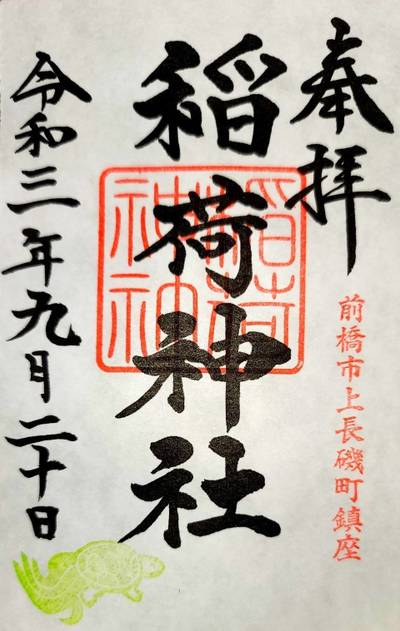 奉拝
前橋市上長磯町鎮座
稲荷神社
稲荷神社
令和三年九月二十日